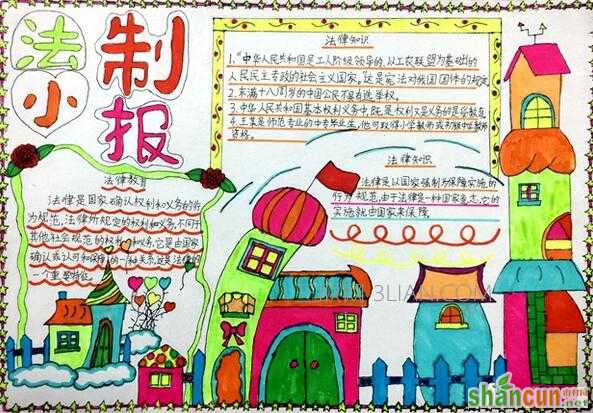 法制
小报
法律知识
1.“中华人民共和国是工人阶级领导的,以工农联盟为基础的
人民民主专政的社会主义国家,这是宪法对我国国体的规定
2.未满十八周岁的中国公民不具有选举权。
3.中华人民共和国基本权利义务中,既是权利又是义务的是受教育
4.王某是师范专业的中专毕业生,他可取得小学教师或初级中学教师
资格。
法律知识
法律是以国家强制力保障实施的
行为规范,由于法律是一种国家意志,它的
实施就由国家来保障
法律教育
法律是国家确认权利和义务的行
为规范,法律所规定的权利和义务,不同于
其他社会规范的权利和义务,它是由国家
确认或认可和保障的一种关系,这是法律的
一个重要特征。
3LIAN.COM
shancun
.net